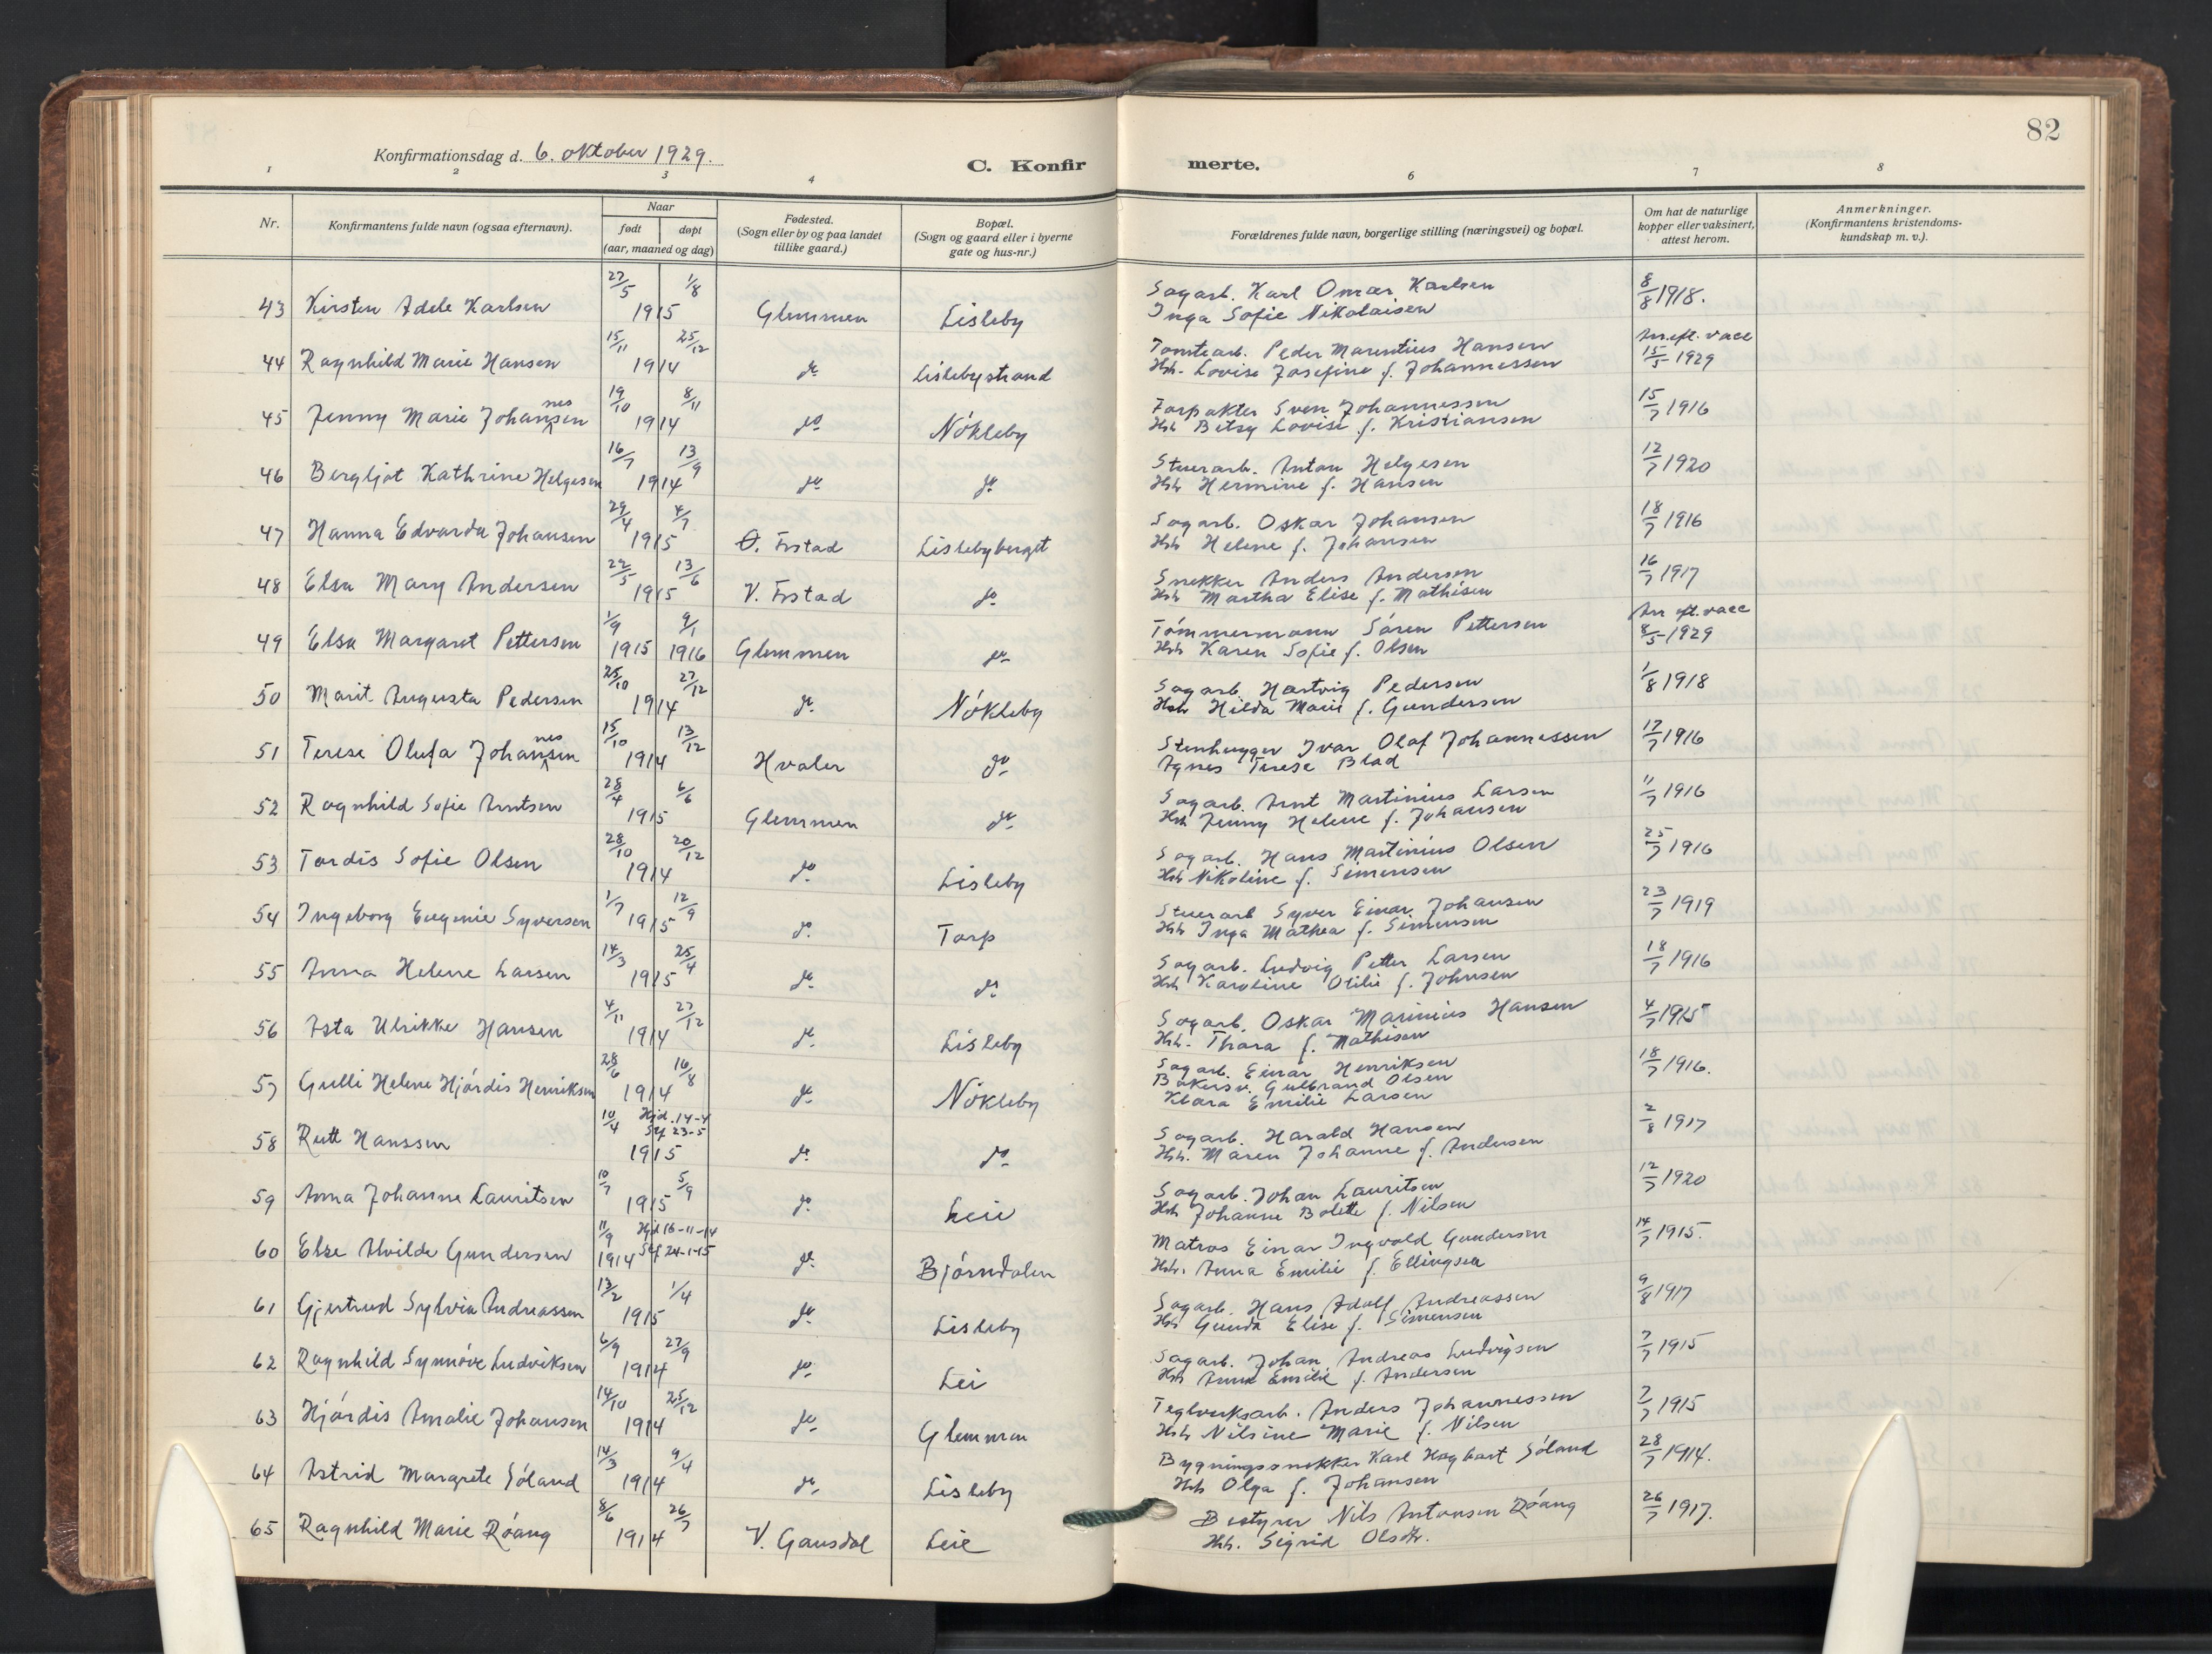 82
Konfirmationsdag d. 6. oktober 1929.
C. Konfirmerte.
1 2 3 4 6 7 8
Nr.
Konfirmantens fulde navn (ogsaa efternavn).
Naar
født døpt
(aar, maaned og dag)
Fødested.
(Sogn eller by og paa landet
tillike gaard.)
Bopæl.
(Sogn og gaard eller i byerne
gate og hus-nr.)
Forældrenes fulde navn, borgerlige stilling (næringsvei) og bopæl.
Om hat de naturlige
kopper eller vaksinert,
attest herom.
Anmerkninger.
(Konfirmantens kristendoms-
kundskap m. v.).
43 Kirsten Adele Karlsen 27/5 1/8 1915 Glemmen Lisleby
Sagarb. Karl Omar Karlsen
Inga Sofie Nikolaisen
8/8 1918.
44 Ragnhild Marie Hansen 15/11 25/12 1914 do Lislebystrand
Tomtearb. Peder Marentius Hansen
Hstr. Lovise Josefine f. Johannessen
An. eft. vacc
15/5 1929
45 Jenny Marie Johannessen 19/10 8/11 1914 do Nökleby
Forpakter Sven Johannessen
Hstr Betsy Lovise f. Kristiansen
15/7 1916
46 Bergljot Kathrine Helgesen 16/7 13/9 1914 do do
Stuerarb. Anton Helgesen
Hstr Hermine f. Hansen
12/7 1920
47 Hanna Edvarda Johansen 29/4 4/7 1915 Ø. Frstad Lislebyberget
Sagarb. Oskar Johansen
Hstr Helene f. Johansen
18/7 1916
48 Elsa Mary Andersen 22/5 13/6 1915 V. Frstad do
Snekker Anders Andersen
Hstr Martha Elise f. Mathisen
16/7 1917
49 Elsa Margaret Pettersen 1/9 1915 9/1 1916 Glemmen do
Tömmermann Sören Pettersen
Hstr Karen Sofie f. Olsen
An eft. vacc
8/5 1929
50 Marit Augusta Pedersen 25/10 27/12 1914 do Nökleby
Sagarb. Hartvig Pedersen
Hstr Hilda Marie f. Gundersen
1/8 1918
51 Terese Olufa Johannessen 15/10 13/12 1914 Hvaler do
Stenhugger Ivar Olaf Johannessen
Agnes Terese Blad
17/7 1916
52 Ragnhild Sofie Arntsen 28/4 6/6 1915 Glemmen do
Sagarb. Arnt Martinius Larsen
Hstr Jenny Helene f. Johansen
11/7 1916
53 Tordis Sofie Olsen 28/10 20/12 1914 do Lisleby
Sagarb. Hans Martinius Olsen
Hstr Nikoline f. Simensen
25/7 1916
54 Ingeborg Eugenie Syversen 1/7 12/9 1915 do Torp
Stuerarb Syver Einar Johansen
Hstr Inga Mathea f. Simensen
23/7 1919
55 Anna Helene Larsen 14/3 25/4 1915 do do
Sagarb. Ludvig Petter Larsen
Hstr Karoline Otilie f. Johnsen
18/7 1916
56 Asta Ulrikke Hansen 4/11 27/12 1914 do Lisleby
Sagarb. Oskar Marinius Hansen
Hstr. Thora f. Mathisen
4/7 1915
57 Gulli Helene Hjördis Henriksen 28/6 16/8 1914 do Nökleby
Sagarb. Einar Henriksen
Bakersv. Gulbrand Olsen
Klara Emilie Larsen
18/7 1916.
58 Rutt Hanssen 10/4 Hjd. 14-4 Stf 23-5 1915 do do
Sagarb. Harald Hansen
Hstr. Maren Johanne f. Andersen
2/8 1917
59 Anna Johanne Lauritsen 10/7 5/9 1915 do Leie
Sagarb. Johan Lauritsen
Hstr Johanne Bolette f. Nilsen
12/7 1920
60 Else Alvilde Gundersen 11/9 1914 Hjd 16-11-14 Stf 24-1-15 do Björndalen
Matros Einar Ingvald Gundersen
Hstr. Anna Emilie f. Ellingsen
14/7 1915.
61 Gjertrud Sylvia Andreassen 13/2 1/4 1915 do Lisleby
Sagarb. Hans Adolf Andreassen
Hstr Gunda Elise f. Simensen
9/8 1917
62 Ragnhild Synnöve Ludviksen 6/9 27/9 1914 do Lei
Sagarb. Johan Andreas Ludvigsen
Hstr Anna Emilie f. Andersen
7/7 1915
63 Hjördis Amalie Johansen 14/10 25/12 1914 do Glemmen
Teglverksarb. Anders Johannessen
Hstr Nilsine Marie f. Nilsen
7/7 1915
64 Astrid Margrete Söland 14/3 9/4 1914 do Lisleby
Bygningssnekker Karl Hagbart Söland
Hstr Olga f. Johansen
28/7 1914.
65 Ragnhild Marie Röang 8/6 26/7 1914 V. Gausdal Leie
Bestyrer Nils Antonsen Röang
Hstr. Sigrid Olsdtr.
26/7 1917.